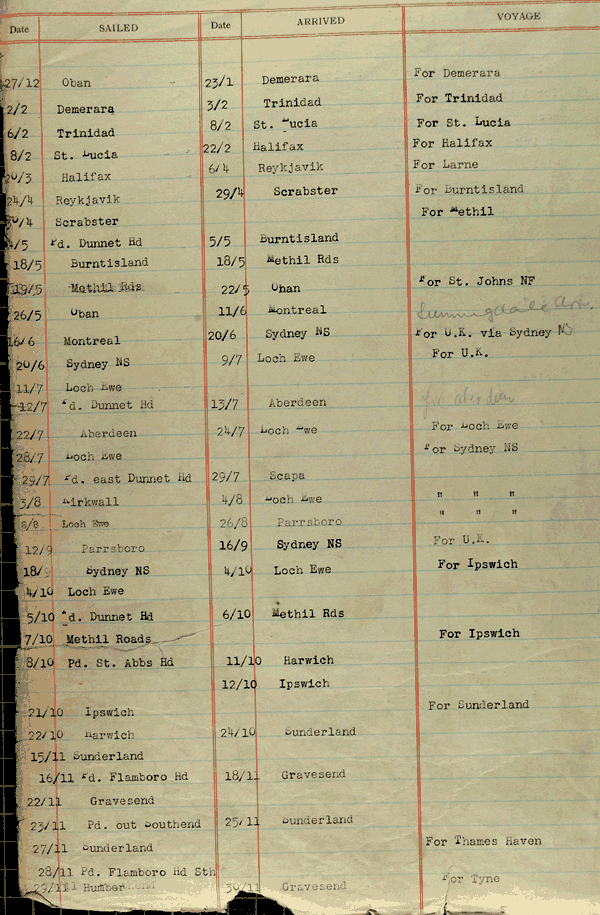 Date SAILED Date ARRIVED VOYAGE
27/12 Oban 23/1 Demerara For Demerara
2/2 Demerara 3/2 Trinidad For Trinidad
6/2 Trinidad 8/2 St. Lucia For St. Lucia
8/2 St. Lucia 22/2 Halifax For Halifax
20/3 Halifax 6/4 Reykjavik For Larne
24/4 Reykjavik 29/4 Scrabster For Burntisland
30/4 Scrabster For Methil
4/5 Pd. Dunnet Hd 5/5 Burntisland
18/5 Burntisland 18/5 Methil Rds
19/5 Methil Rds 22/5 Oban For St. Johns NF
26/5 Oban 11/6 Montreal
16/6 Montreal 20/6 Sydney NS For U.K. via Sydney NS
20/6 Sydney NS 9/7 Loch Ewe For U.K.
11/7 Loch Ewe
12/7 Pd. Dunnet Hd 13/7 Aberdeen for Aberdeen
22/7 Aberdeen 24/7 Loch Ewe For Loch Ewe
28/7 Loch Ewe For Sydney NS
29/7 Pd. east Dunnet Hd 29/7 Scapa
3/8 Kirkwall 4/8 Loch Ewe " " "
8/8 Loch Ewe 26/8 Parrsboro " " "
12/9 Parrsboro 16/9 Sydney NS For U.K.
18/9 Sydney NS 4/10 Loch Ewe For Ipswich
4/10 Loch Ewe
5/10 Pd. Dunnet Hd 6/10 Methil Rds
7/10 Methil Roads For Ipswich
8/10 Pd. St. Abbs Hd 11/10 Harwich
12/10 Ipswich
21/10 Ipswich For Sunderland
22/10 Harwich 24/10 Sunderland
15/11 Sunderland
16/11 Pd. Flamboro Hd 18/11 Gravesend
22/11 Gravesend
23/11 Pd. out Southend 25/11 Sunderland
27/11 Sunderland For Thames Haven
28/11 Pd. Flamboro Hd Sth
29/11 Humber 30/11 Gravesend For Tyne